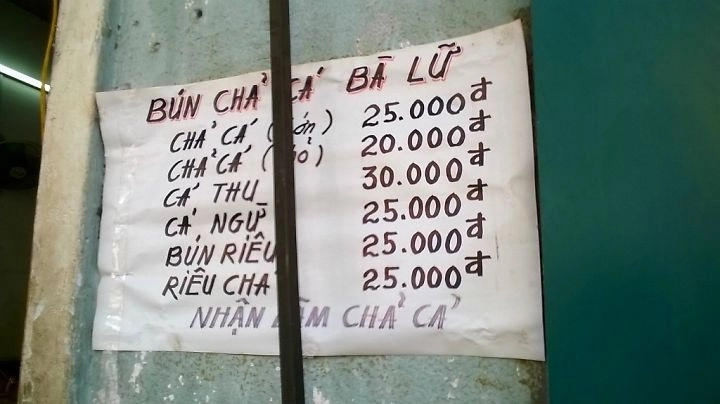 BÚN CHẢ CÁ BÀ LỮ
CHẢ CÁ (lớn) 25.000đ
CHẢ CÁ (nhỏ) 20.000đ
CÁ THU 30.000đ
CÁ NGỪ 25.000đ
BÚN RIÊU 25.000đ
RIÊU CHẢ 25.000đ
NHẬN LÀM CHẢ CÁ